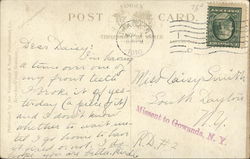 POST CARD.
Dear Daisy:
I'm having
a time over one of
my front teeth
I broke it off yes-
today (a piece of it)
and I don't know
whether to wait un-
til I go home to have
it fixed or not. I
Miss Daisy Smith
South Dayton
N.Y.
R.D. # 2
Missent to Gowanda, N. Y.